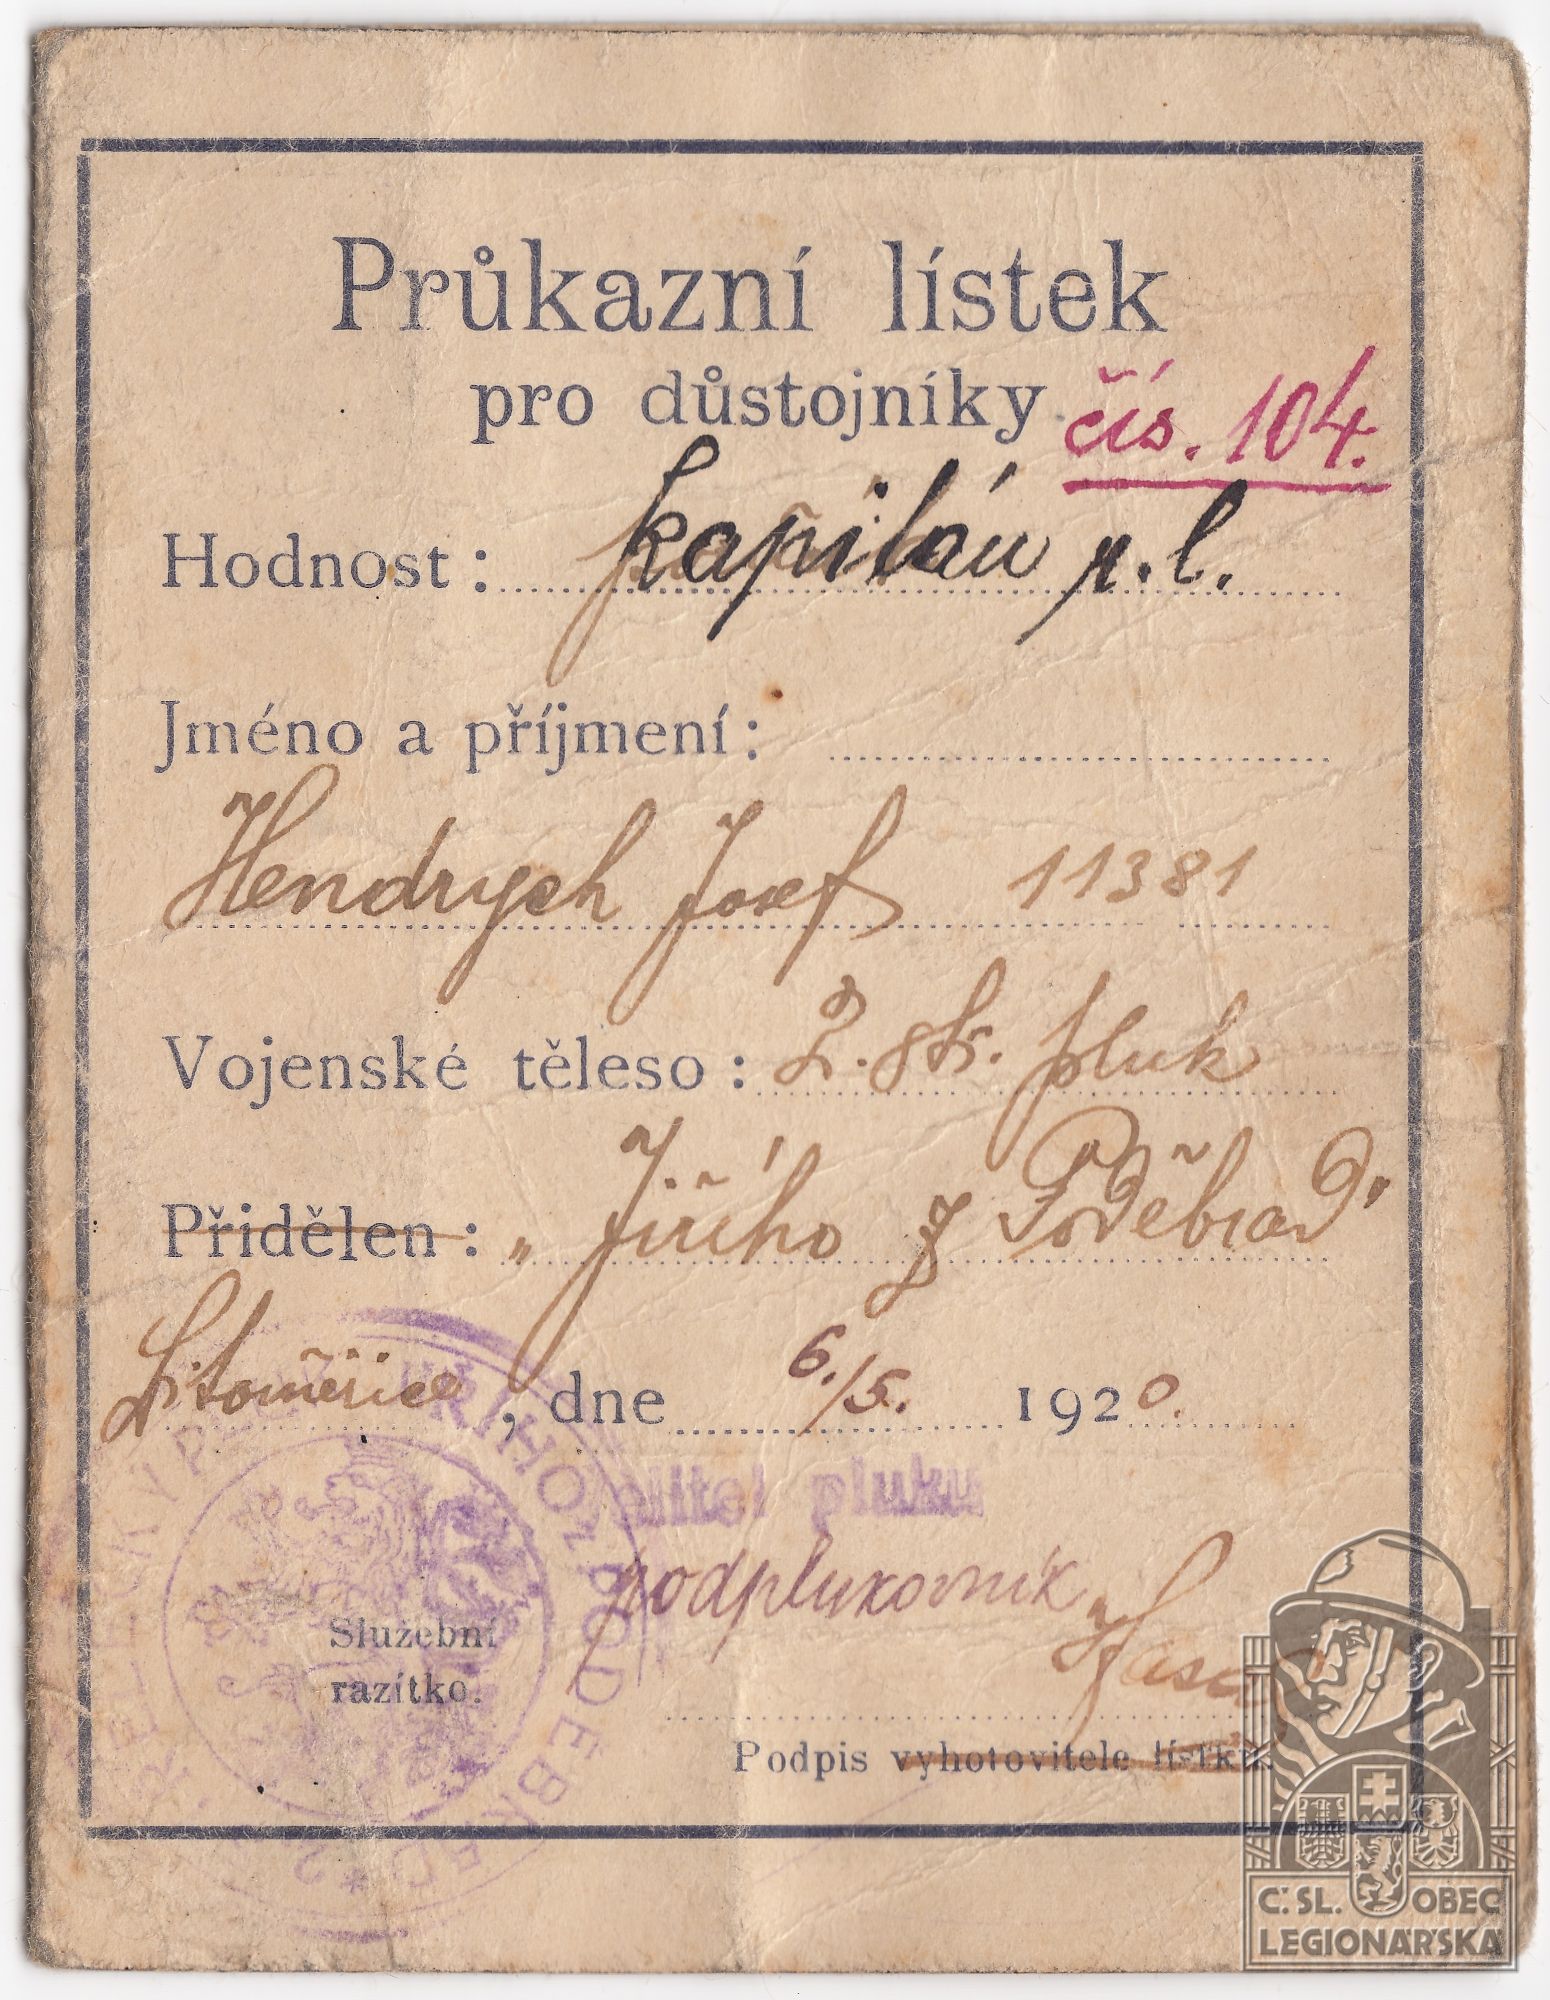 Průkazní lístek
pro důstojníky čís. 104.
Hodnost: kapitán r. l.
Jméno a příjmení:
Hendrych Josef 11381
Vojenské těleso: 2. stř. pluk
Přidělen: „Jiřího z Poděbrad"
Litoměřice, dne 6./5. 1920.
velitel pluku
podplukovník
Služební
razítko.
Podpis vyhotovitele lístku.
JIŘÍHO z PODĚBRAD * 2
Č. SL. OBEC
LEGIONÁŘSKÁ